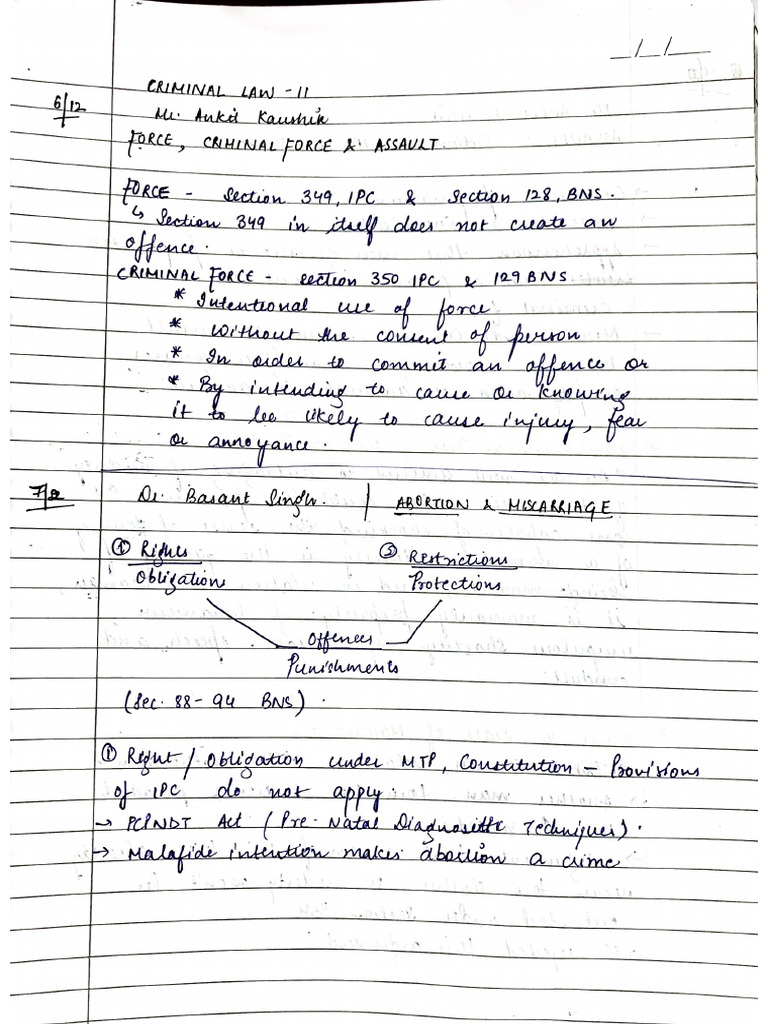 __/__/__
CRIMINAL LAW - II
6/12
Mr. Ankit Kaushik
FORCE, CRIMINAL FORCE & ASSAULT
FORCE - Section 349, IPC & Section 128, BNS.
↳ Section 349 in itself does not create an
offence.
CRIMINAL FORCE - section 350 IPC & 129 BNS
* Intentional use of force
* Without the consent of person
* In order to commit an offence or
* By intending to cause or knowing
it to be likely to cause injury, fear
or annoyance.
Dr. Basant Singh. | ABORTION & MISCARRIAGE
① Rights ③ Restrictions
Obligation Protections
Offences
Punishments
(Sec. 88-94 BNS).
① Right / Obligation under MTP, Constitution - Provisions
of IPC do not apply.
→ PCPNDT Act (Pre-Natal Diagnostic Techniques).
→ Malafide intention makes abortion a crime